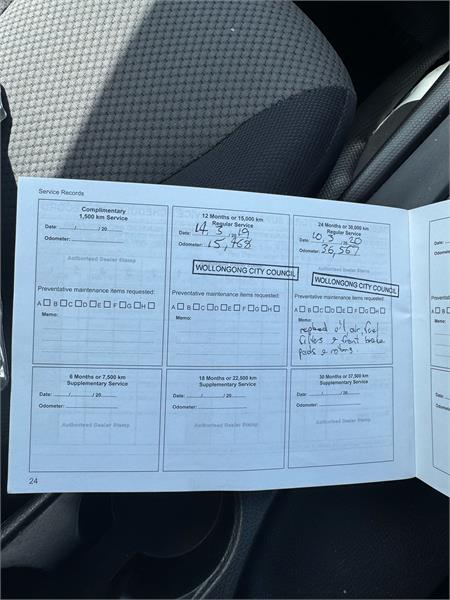 Service Records
Complimentary
1,500 km Service
Date: ....../....../ 20 ......
Odometer: ......
Authorised Dealer Stamp
Preventative maintenance items requested:
A B C D E F G H
Memo:
12 Months or 15,000 km
Regular Service
Date: 14, 3, 2019
Odometer: 15,468
WOLLONGONG CITY COUNCIL
Preventative maintenance items requested:
A B C D E F G H
Memo:
24 Months or 30,000 km
Regular Service
Date: 10, 3, 2020
Odometer: 36,567
Authorised Dealer Stamp
WOLLONGONG CITY COUNCIL
Preventative maintenance items requested:
A B C D E F G H
Memo:
replaced oil, air, fuel
filters & front brake
pads & rotors
6 Months or 7,500 km
Supplementary Service
Date: ....../....../ 20 ......
Odometer: ......
Authorised Dealer Stamp
18 Months or 22,500 km
Supplementary Service
Date: ....../....../ 20 ......
Odometer: ......
Authorised Dealer Stamp
30 Months or 37,500 km
Supplementary Service
Date: ....../....../ 20 ......
Odometer: ......
Authorised Dealer Stamp
24